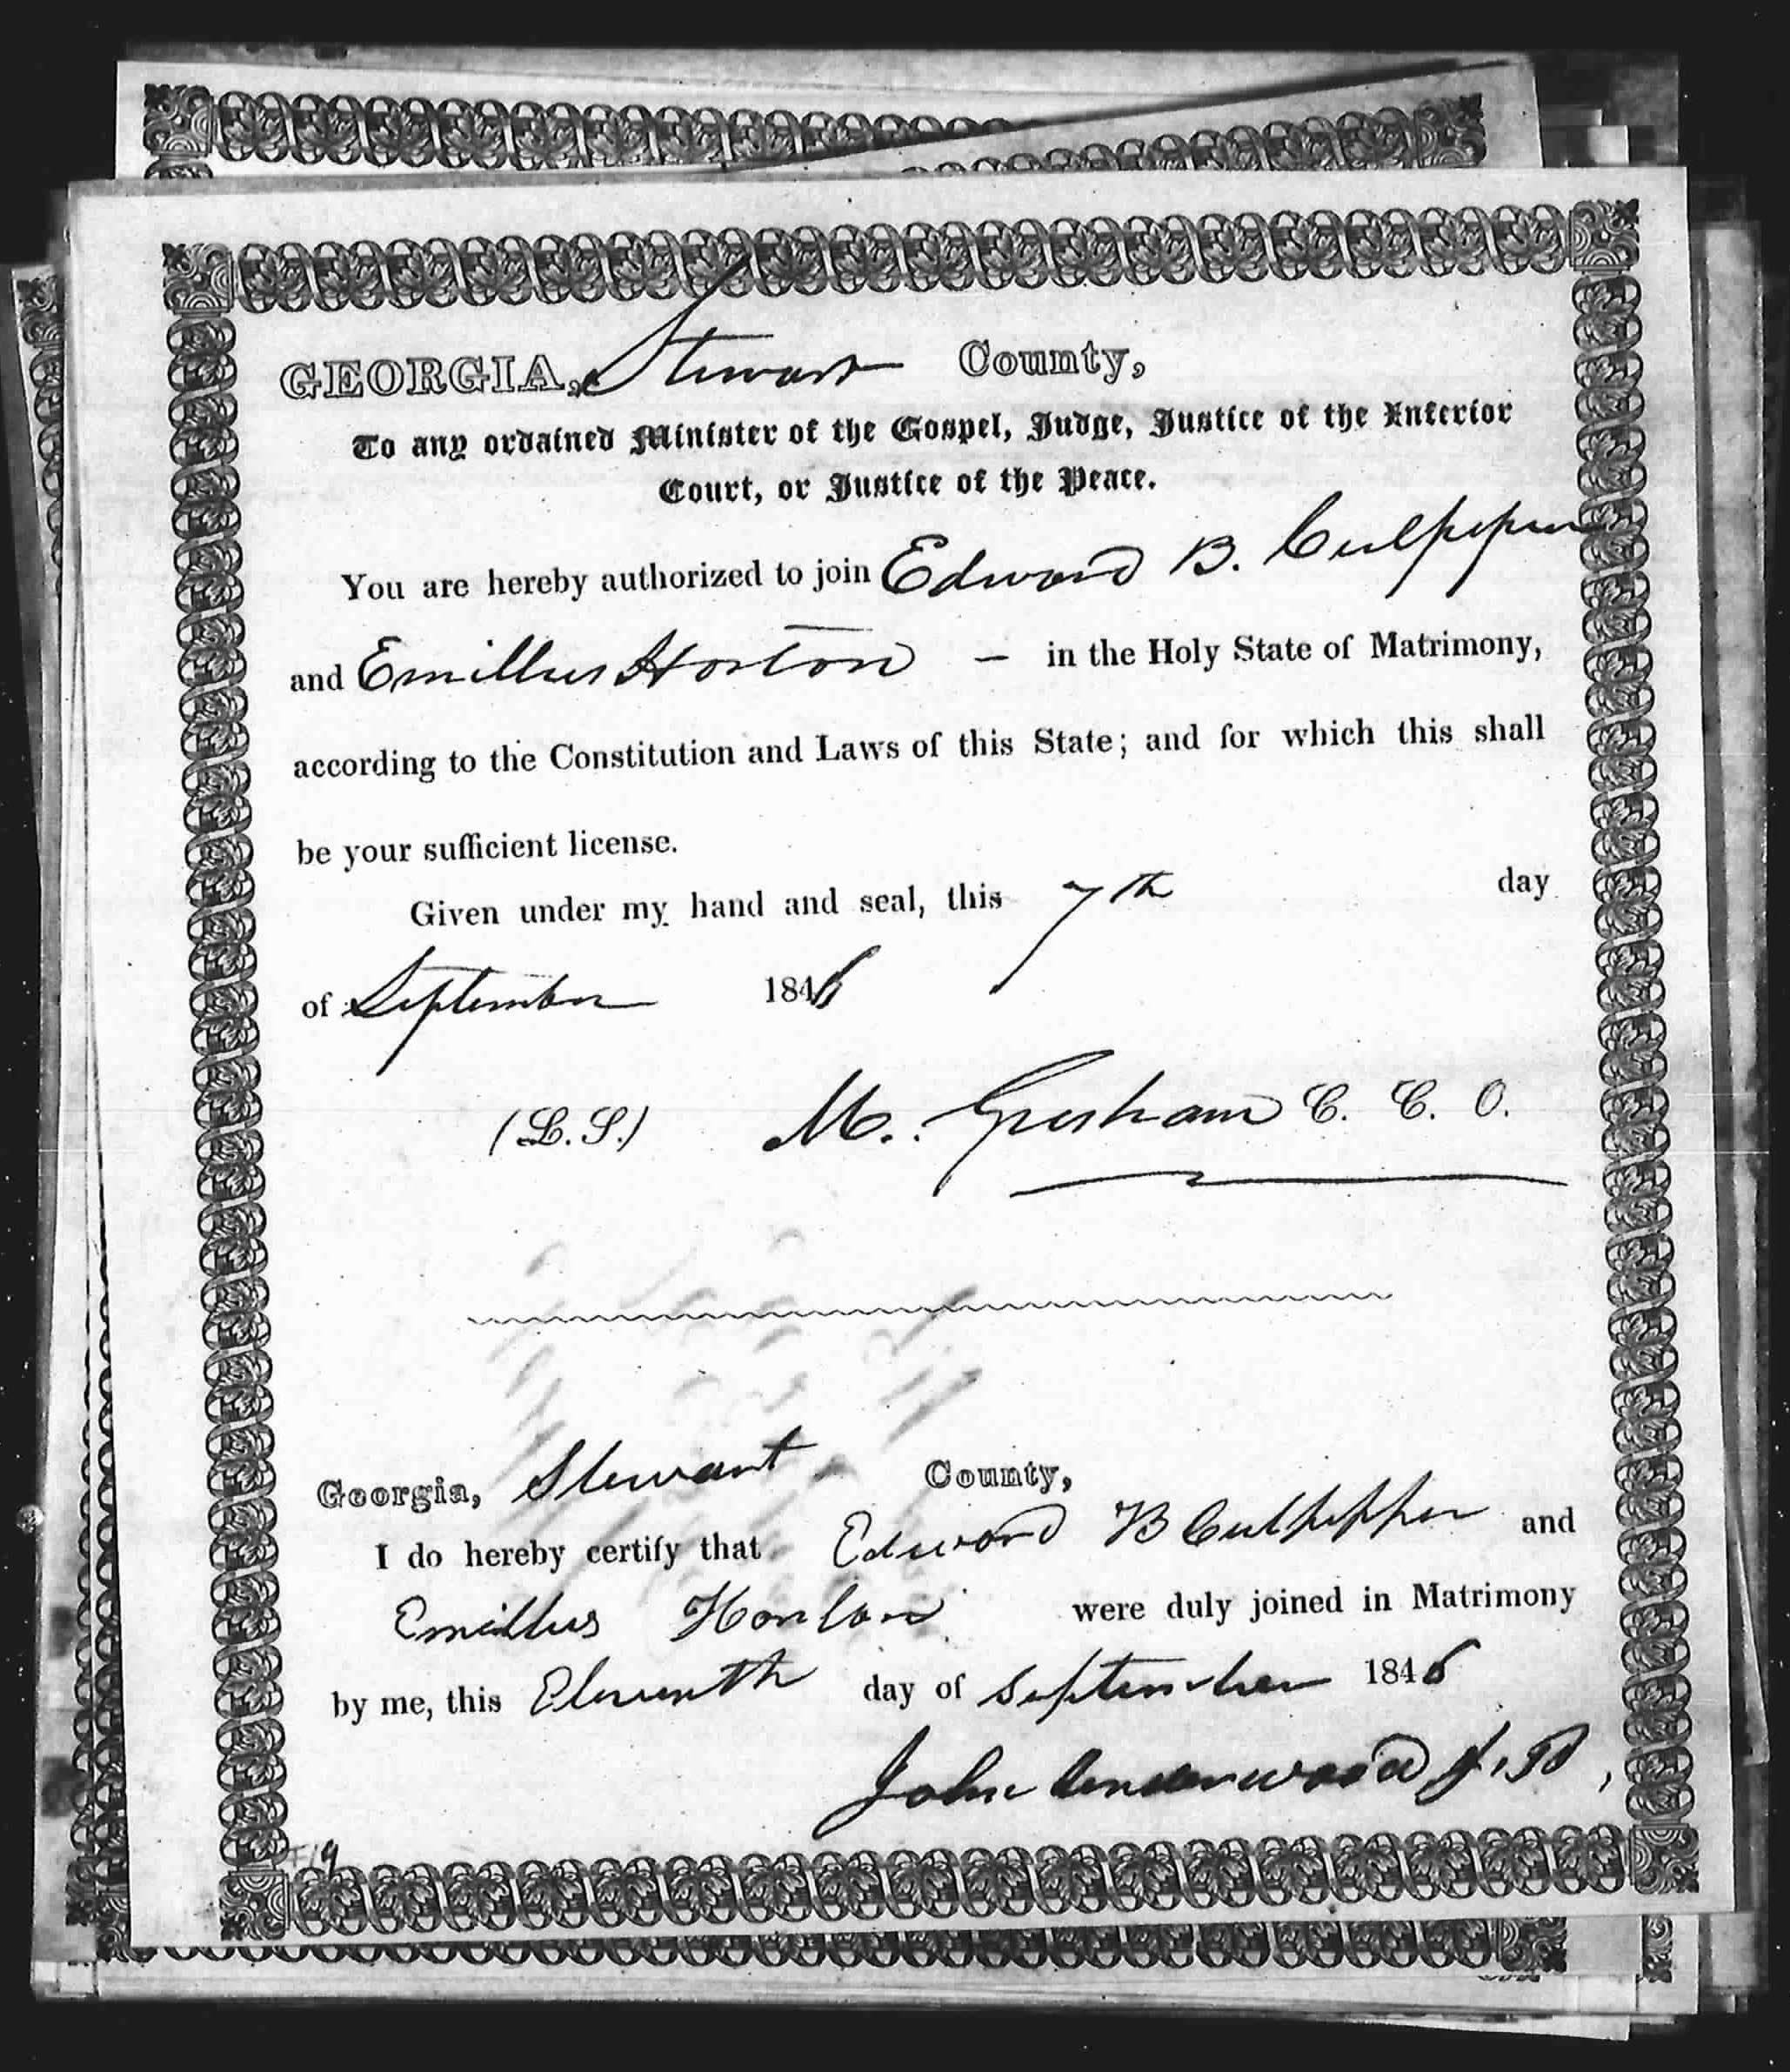 GEORGIA, Stewart County,
To any ordained Minister of the Gospel, Judge, Justice of the Inferior
Court, or Justice of the Peace.
You are hereby authorized to join Edward B. Culpepper
and Emillus Horton – in the Holy State of Matrimony,
according to the Constitution and Laws of this State; and for which this shall
be your sufficient license.
Given under my hand and seal, this 7th day
of September 1846
(L.S.) M. Gresham C. C. O.
Georgia, Stewart County,
I do hereby certify that Edward B Culpepper and
Emillus Horton were duly joined in Matrimony
by me, this Eleventh day of September 1846
John Underwood J.P.